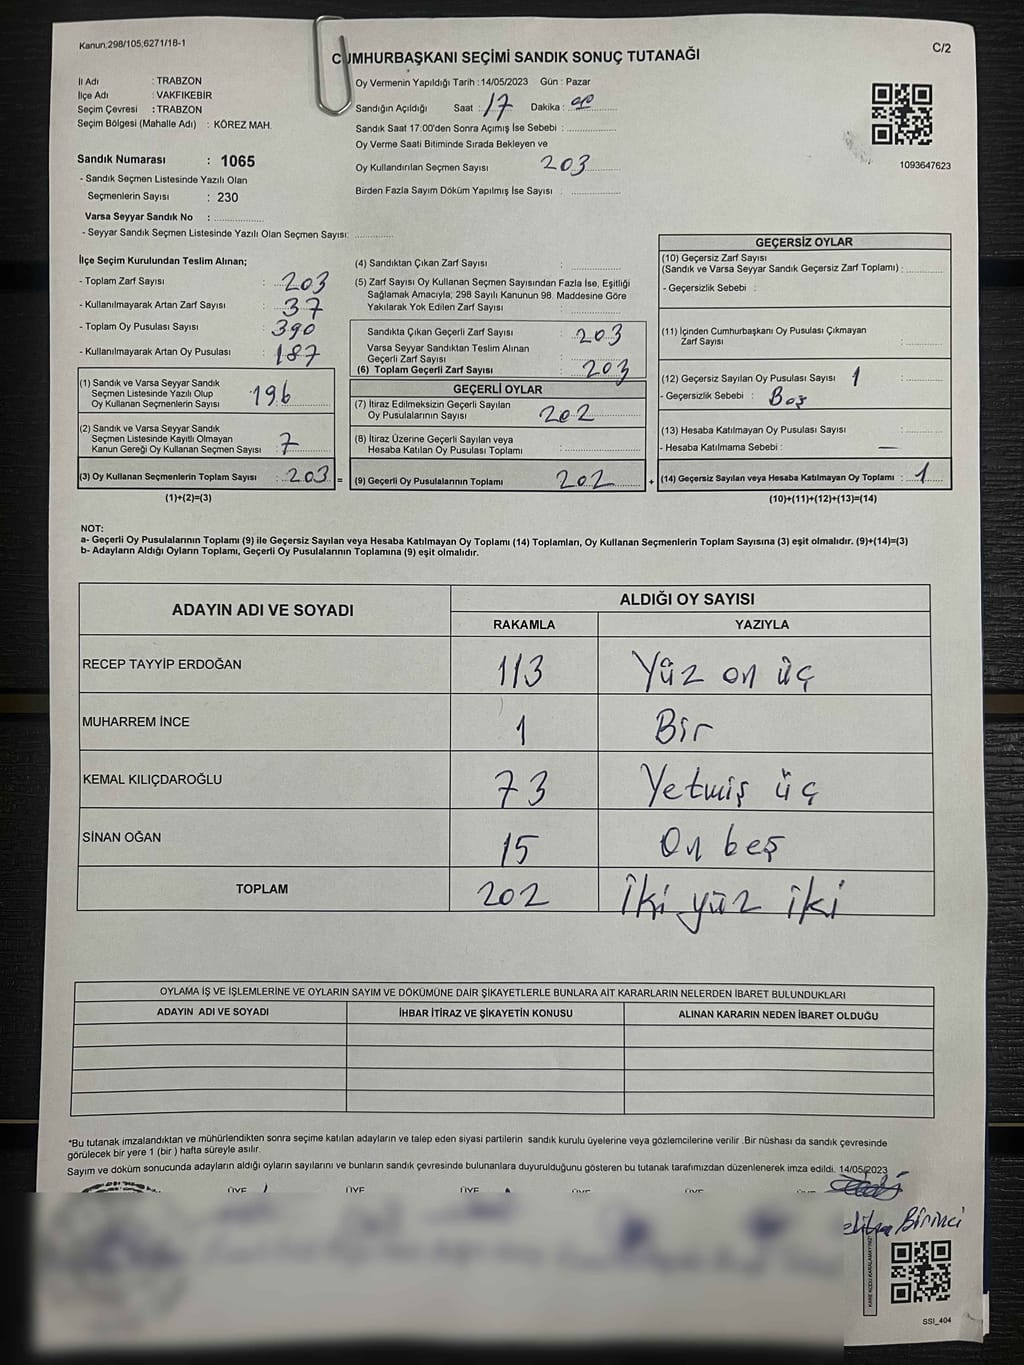 Kanun;298/105;6271/18-1
CUMHURBAŞKANI SEÇİMİ SANDIK SONUÇ TUTANAĞI
C/2
İl Adı : TRABZON
İlçe Adı : VAKFIKEBİR
Seçim Çevresi : TRABZON
Seçim Bölgesi (Mahalle Adı) : KÖREZ MAH.
Sandık Numarası : 1065
- Sandık Seçmen Listesinde Yazılı Olan
Seçmenlerin Sayısı : 230
Varsa Seyyar Sandık No : ................
- Seyyar Sandık Seçmen Listesinde Yazılı Olan Seçmen Sayısı: ............
Oy Vermenin Yapıldığı Tarih : 14/05/2023 Gün : Pazar
Sandığın Açıldığı Saat : 17 Dakika : 00
Sandık Saat 17:00'den Sonra Açımış İse Sebebi : ................
Oy Verme Saati Bitiminde Sırada Bekleyen ve
Oy Kullandırılan Seçmen Sayısı 203
Birden Fazla Sayım Döküm Yapılmış İse Sayısı : ................
1093647623
İlçe Seçim Kurulundan Teslim Alınan;
- Toplam Zarf Sayısı : 203
- Kullanılmayarak Artan Zarf Sayısı : 37
- Toplam Oy Pusulası Sayısı : 390
- Kullanılmayarak Artan Oy Pusulası : 187
(1) Sandık ve Varsa Seyyar Sandık
Seçmen Listesinde Yazılı Olup
Oy Kullanan Seçmenlerin Sayısı : 196
(2) Sandık ve Varsa Seyyar Sandık
Seçmen Listesinde Kayıtlı Olmayan
Kanun Gereği Oy Kullanan Seçmen Sayısı : 7
(3) Oy Kullanan Seçmenlerin Toplam Sayısı : 203 =
(1)+(2)=(3)
(4) Sandıktan Çıkan Zarf Sayısı : ................
(5) Zarf Sayısı Oy Kullanan Seçmen Sayısından Fazla İse, Eşitliği
Sağlamak Amacıyla, 298 Sayılı Kanunun 98. Maddesine Göre
Yakılarak Yok Edilen Zarf Sayısı : ................
Sandıkta Çıkan Geçerli Zarf Sayısı : 203
Varsa Seyyar Sandıktan Teslim Alınan
Geçerli Zarf Sayısı :
(6) Toplam Geçerli Zarf Sayısı : 203
GEÇERLİ OYLAR
(7) İtiraz Edilmeksizin Geçerli Sayılan
Oy Pusulalarının Sayısı : 202
(8) İtiraz Üzerine Geçerli Sayılan veya
Hesaba Katılan Oy Pusulası Toplamı : ................
(9) Geçerli Oy Pusulalarının Toplamı : 202 +
GEÇERSİZ OYLAR
(10) Geçersiz Zarf Sayısı
(Sandık ve Varsa Seyyar Sandık Geçersiz Zarf Toplamı) : ............
- Geçersizlik Sebebi :
(11) İçinden Cumhurbaşkanı Oy Pusulası Çıkmayan
Zarf Sayısı : ............
(12) Geçersiz Sayılan Oy Pusulası Sayısı 1 : ............
- Geçersizlik Sebebi : Boş
(13) Hesaba Katılmayan Oy Pusulası Sayısı : ............
- Hesaba Katılmama Sebebi : —
(14) Geçersiz Sayılan veya Hesaba Katılmayan Oy Toplamı : 1
(10)+(11)+(12)+(13)=(14)
NOT:
a- Geçerli Oy Pusulalarının Toplamı (9) ile Geçersiz Sayılan veya Hesaba Katılmayan Oy Toplamı (14) Toplamları, Oy Kullanan Seçmenlerin Toplam Sayısına (3) eşit olmalıdır. (9)+(14)=(3)
b- Adayların Aldığı Oyların Toplamı, Geçerli Oy Pusulalarının Toplamına (9) eşit olmalıdır.
ADAYIN ADI VE SOYADI
ALDIĞI OY SAYISI
RAKAMLA YAZIYLA
RECEP TAYYİP ERDOĞAN 113 Yüz on üç
MUHARREM İNCE 1 Bir
KEMAL KILIÇDAROĞLU 73 Yetmiş üç
SİNAN OĞAN 15 On beş
TOPLAM 202 İki yüz iki
OYLAMA İŞ VE İŞLEMLERİNE VE OYLARIN SAYIM VE DÖKÜMÜNE DAİR ŞİKAYETLERLE BUNLARA AİT KARARLARIN NELERDEN İBARET BULUNDUKLARI
ADAYIN ADI VE SOYADI İHBAR İTİRAZ VE ŞİKAYETİN KONUSU ALINAN KARARIN NEDEN İBARET OLDUĞU
*Bu tutanak imzalandıktan ve mühürlendikten sonra seçime katılan adayların ve talep eden siyasi partilerin sandık kurulu üyelerine veya gözlemcilerine verilir .Bir nüshası da sandık çevresinde
görülecek bir yere 1 (bir ) hafta süreyle asılır.
Sayım ve döküm sonucunda adayların aldığı oyların sayılarını ve bunların sandık çevresinde bulunanlara duyurulduğunu gösteren bu tutanak tarafımızdan düzenlenerek imza edildi. 14/05/2023
ÜYE ÜYE ÜYE
Birinci
SSI_404